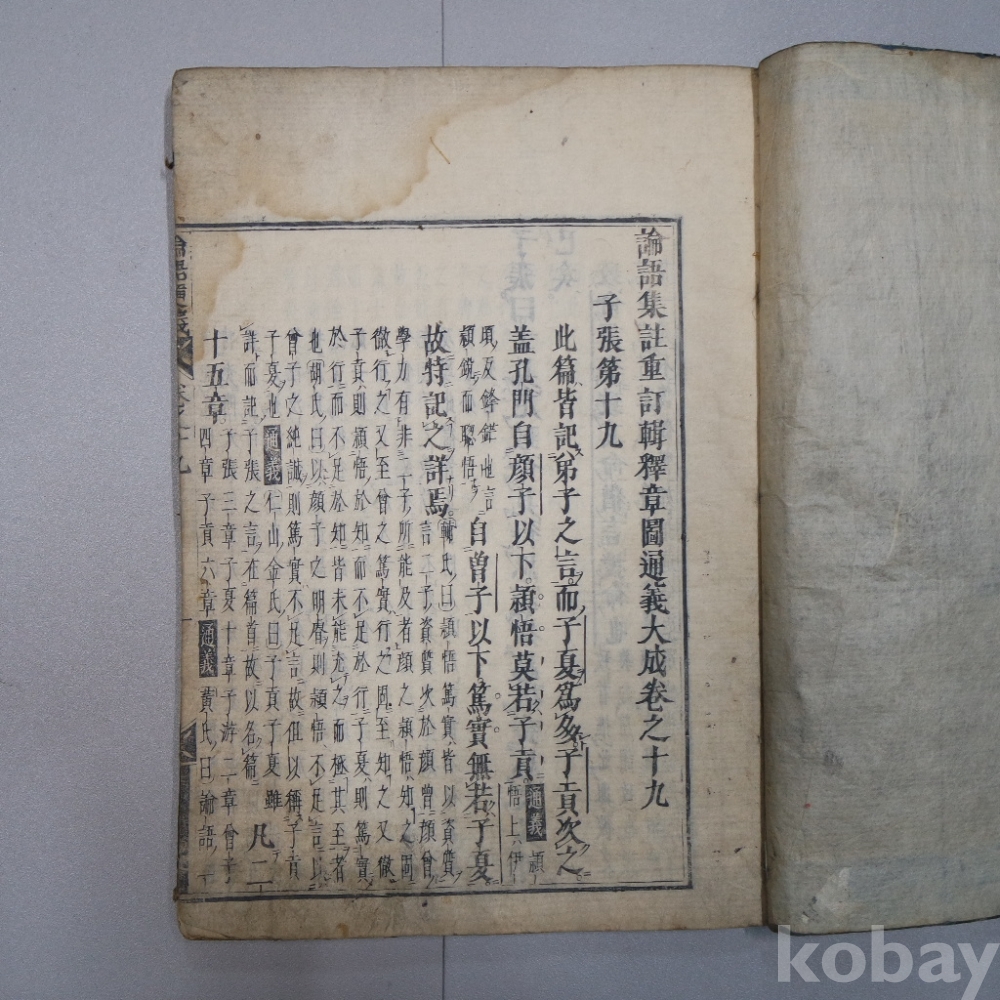 論語集註重訂輯釋章圖通義大成卷之十九
子張第十九
此篇皆記弟子之言而子夏爲多子貢次之
蓋孔門自顏子以下頴悟莫若子貢
通義
頴
悟上伊
頃反鋒鋩也言
頴銳而聰悟
自曽子以下篤實無若子夏
故特記之詳焉
輔氏曰頴悟篤實皆以資質
言二子資質次於顏曾顏曾
學力有非二子所能及者顏之頴悟知之固
微行之又至曾之篤實行之固至知之又徹
子貢則頴悟於知而不足於行子夏則篤實
於行而不足於知皆未能充之而極其至者
也胡氏曰以顏子之明睿則頴悟不足言以
曾子之純誠則篤實不足言故但以稱子貢
子夏也通義仁山金氏曰子貢子夏雖
誅而記子張之言在篇首故以名篇
凡二
十五章
子張三章子夏十章子游二章曾子
四章子貢六章通義黃氏曰論語一
kobay